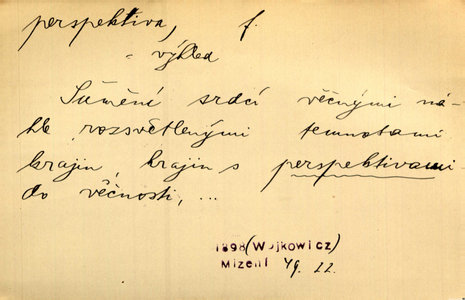 perspektiva, f.
= výhled
Šumění srdcí věčnými ná-
hle rozsvětlenými temnotami
krajin, krajin s perspektivami
do věčnosti, ...
1898 (Wojkowicz)
Mizení 49. 22.